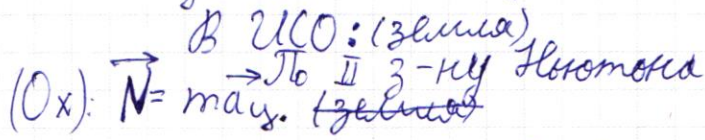 В ИСО: (земля)
По II з-ну Ньютона
(Ox): N = maц. (земля)